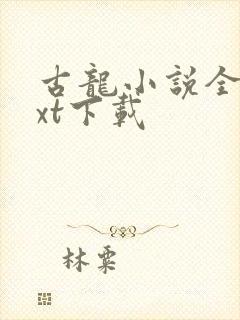 古龍小説全
xt下載
林粟